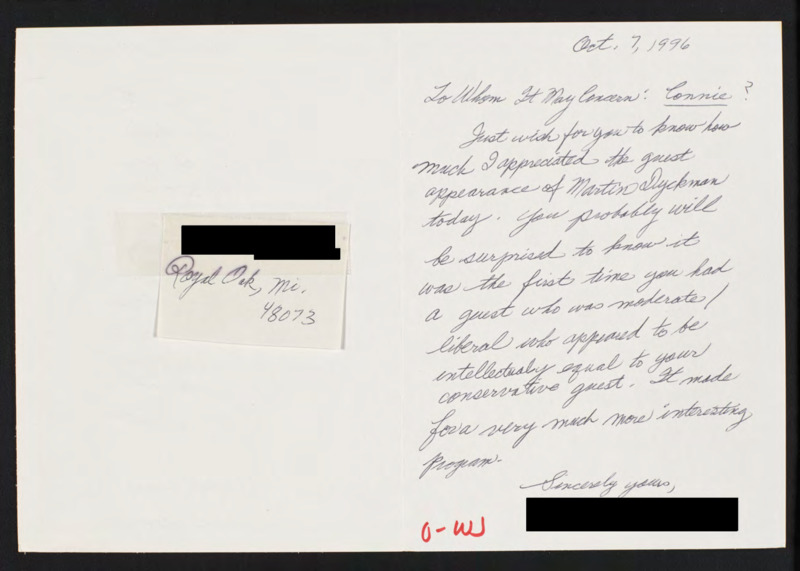 Royal Oak, Mi.
48073
Oct. 7, 1996
To Whom It May Concern: Connie?
Just wish for you to know how
much I appreciated the guest
appearance of Martin Dyckman
today. You probably will
be surprised to know it
was the first time you had
a guest who was moderate/
liberal who appeared to be
intellectualy equal to your
conservative guest. It made
for a very much more interesting
program.
Sincerely yours,
O-W